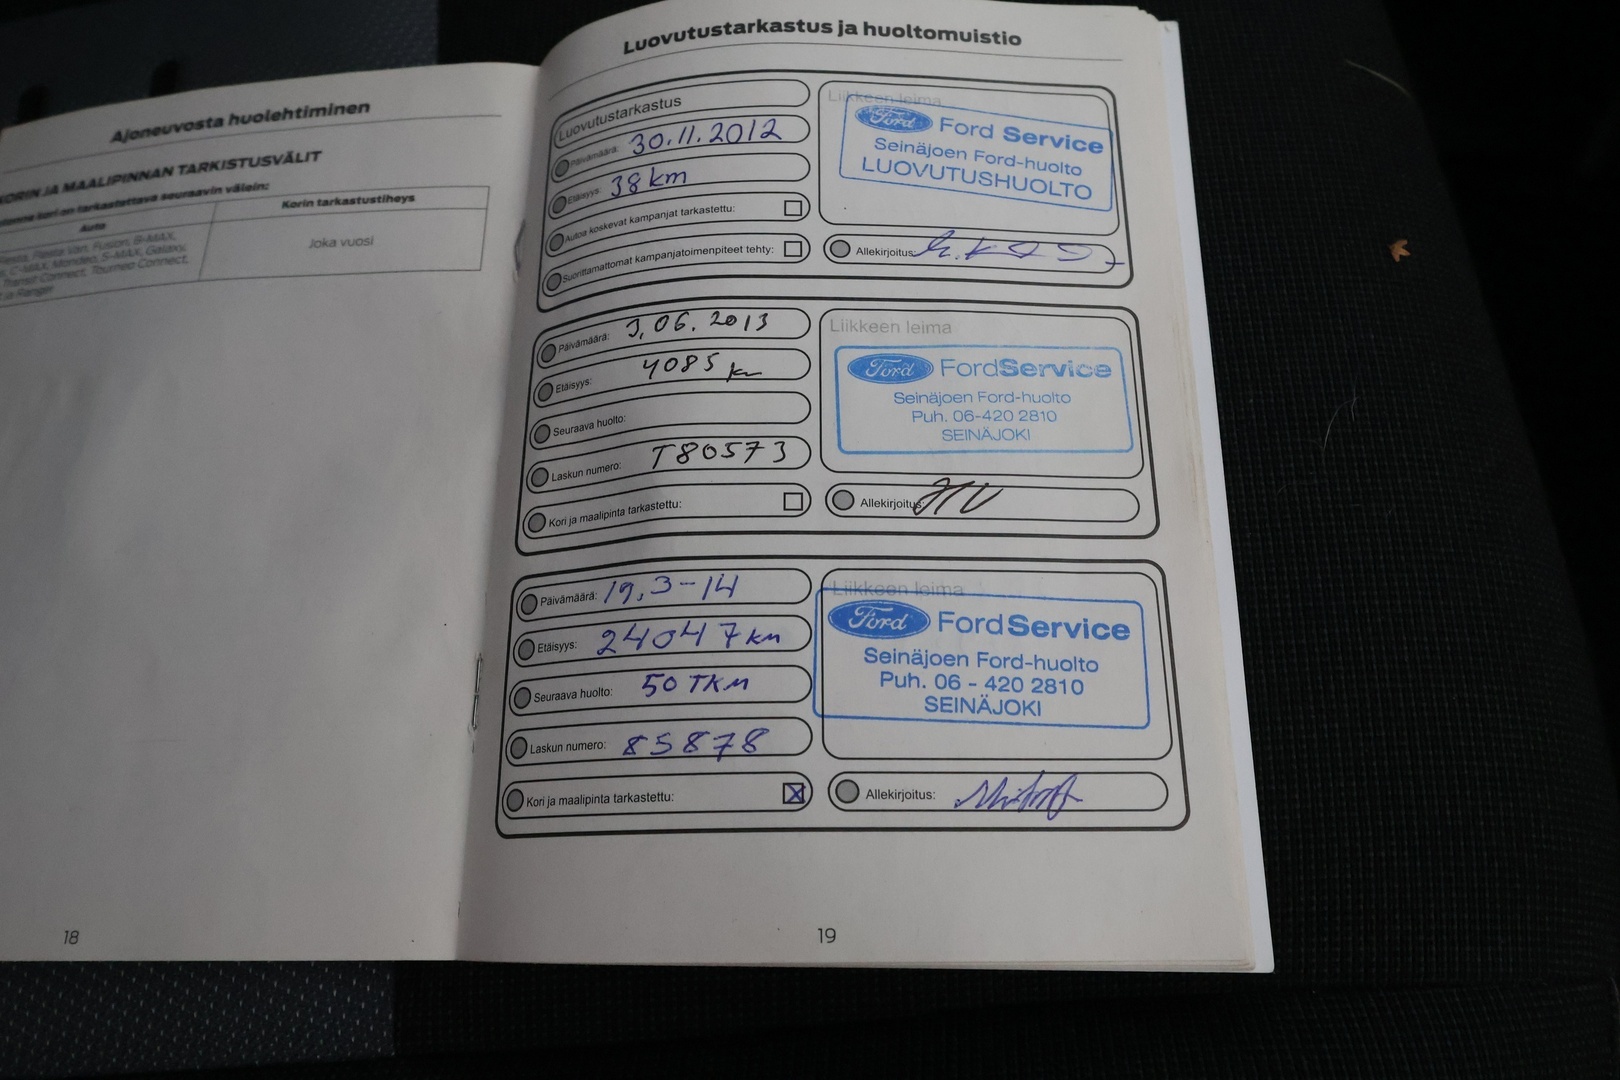 Ajoneuvosta huolehtiminen
KORIN JA MAALIPINNAN TARKISTUSVÄLIT
kori on tarkastettava seuraavin välein:
Auto
Korin tarkastustiheys
Fiesta Van, Fusion, B-MAX,
C-MAX, Mondeo, S-MAX, Galaxy,
Transit Connect, Tourneo Connect,
ja Ranger
Joka vuosi
18
Luovutustarkastus ja huoltomuistio
Luovutustarkastus
Päivämäärä: 30.11.2012
Etäisyys: 38 km
Autoa koskevat kampanjat tarkastettu:
Suorittamattomat kampanjatoimenpiteet tehty:
Liikkeen leima
Ford Ford Service
Seinäjoen Ford-huolto
LUOVUTUSHUOLTO
Allekirjoitus:
Päivämäärä: 3,06.2013
Etäisyys: 4085 km
Seuraava huolto:
Laskun numero: T80573
Kori ja maalipinta tarkastettu:
Liikkeen leima
Ford FordService
Seinäjoen Ford-huolto
Puh. 06-420 2810
SEINÄJOKI
Allekirjoitus:
Päivämäärä: 19,3-14
Etäisyys: 24047 km
Seuraava huolto: 50 TKM
Laskun numero: 85878
Kori ja maalipinta tarkastettu: X
Liikkeen leima
Ford FordService
Seinäjoen Ford-huolto
Puh. 06 - 420 2810
SEINÄJOKI
Allekirjoitus:
19